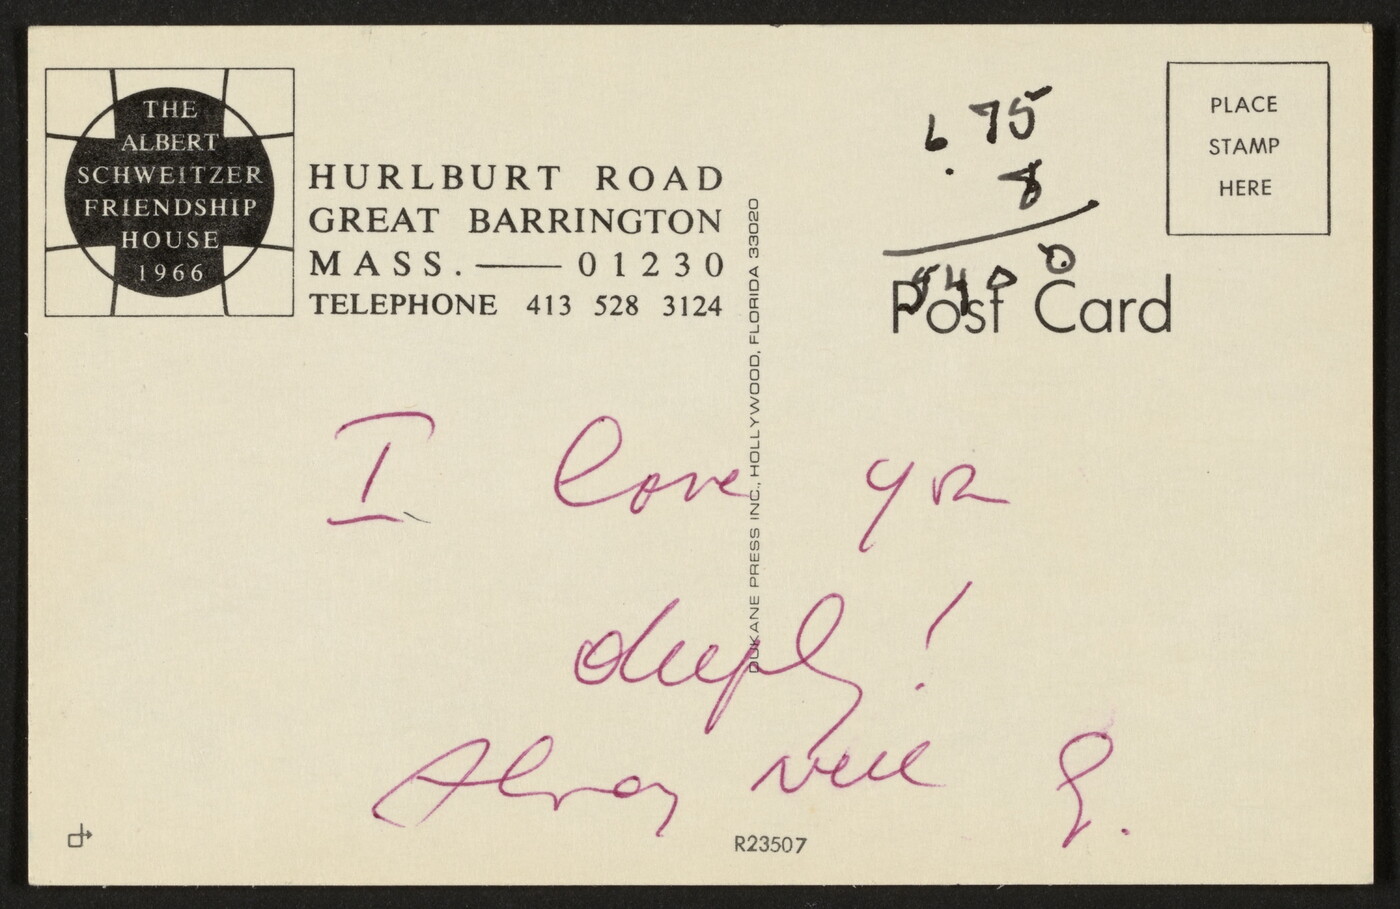 THE
ALBERT
SCHWEITZER
FRIENDSHIP
HOUSE
1966
HURLBURT ROAD
GREAT BARRINGTON
MASS. — 01230
TELEPHONE 413 528 3124
DUKANE PRESS INC., HOLLYWOOD, FLORIDA 33020
6.75
8
5400
Post Card
PLACE
STAMP
HERE
I love you
deeply!
R23507